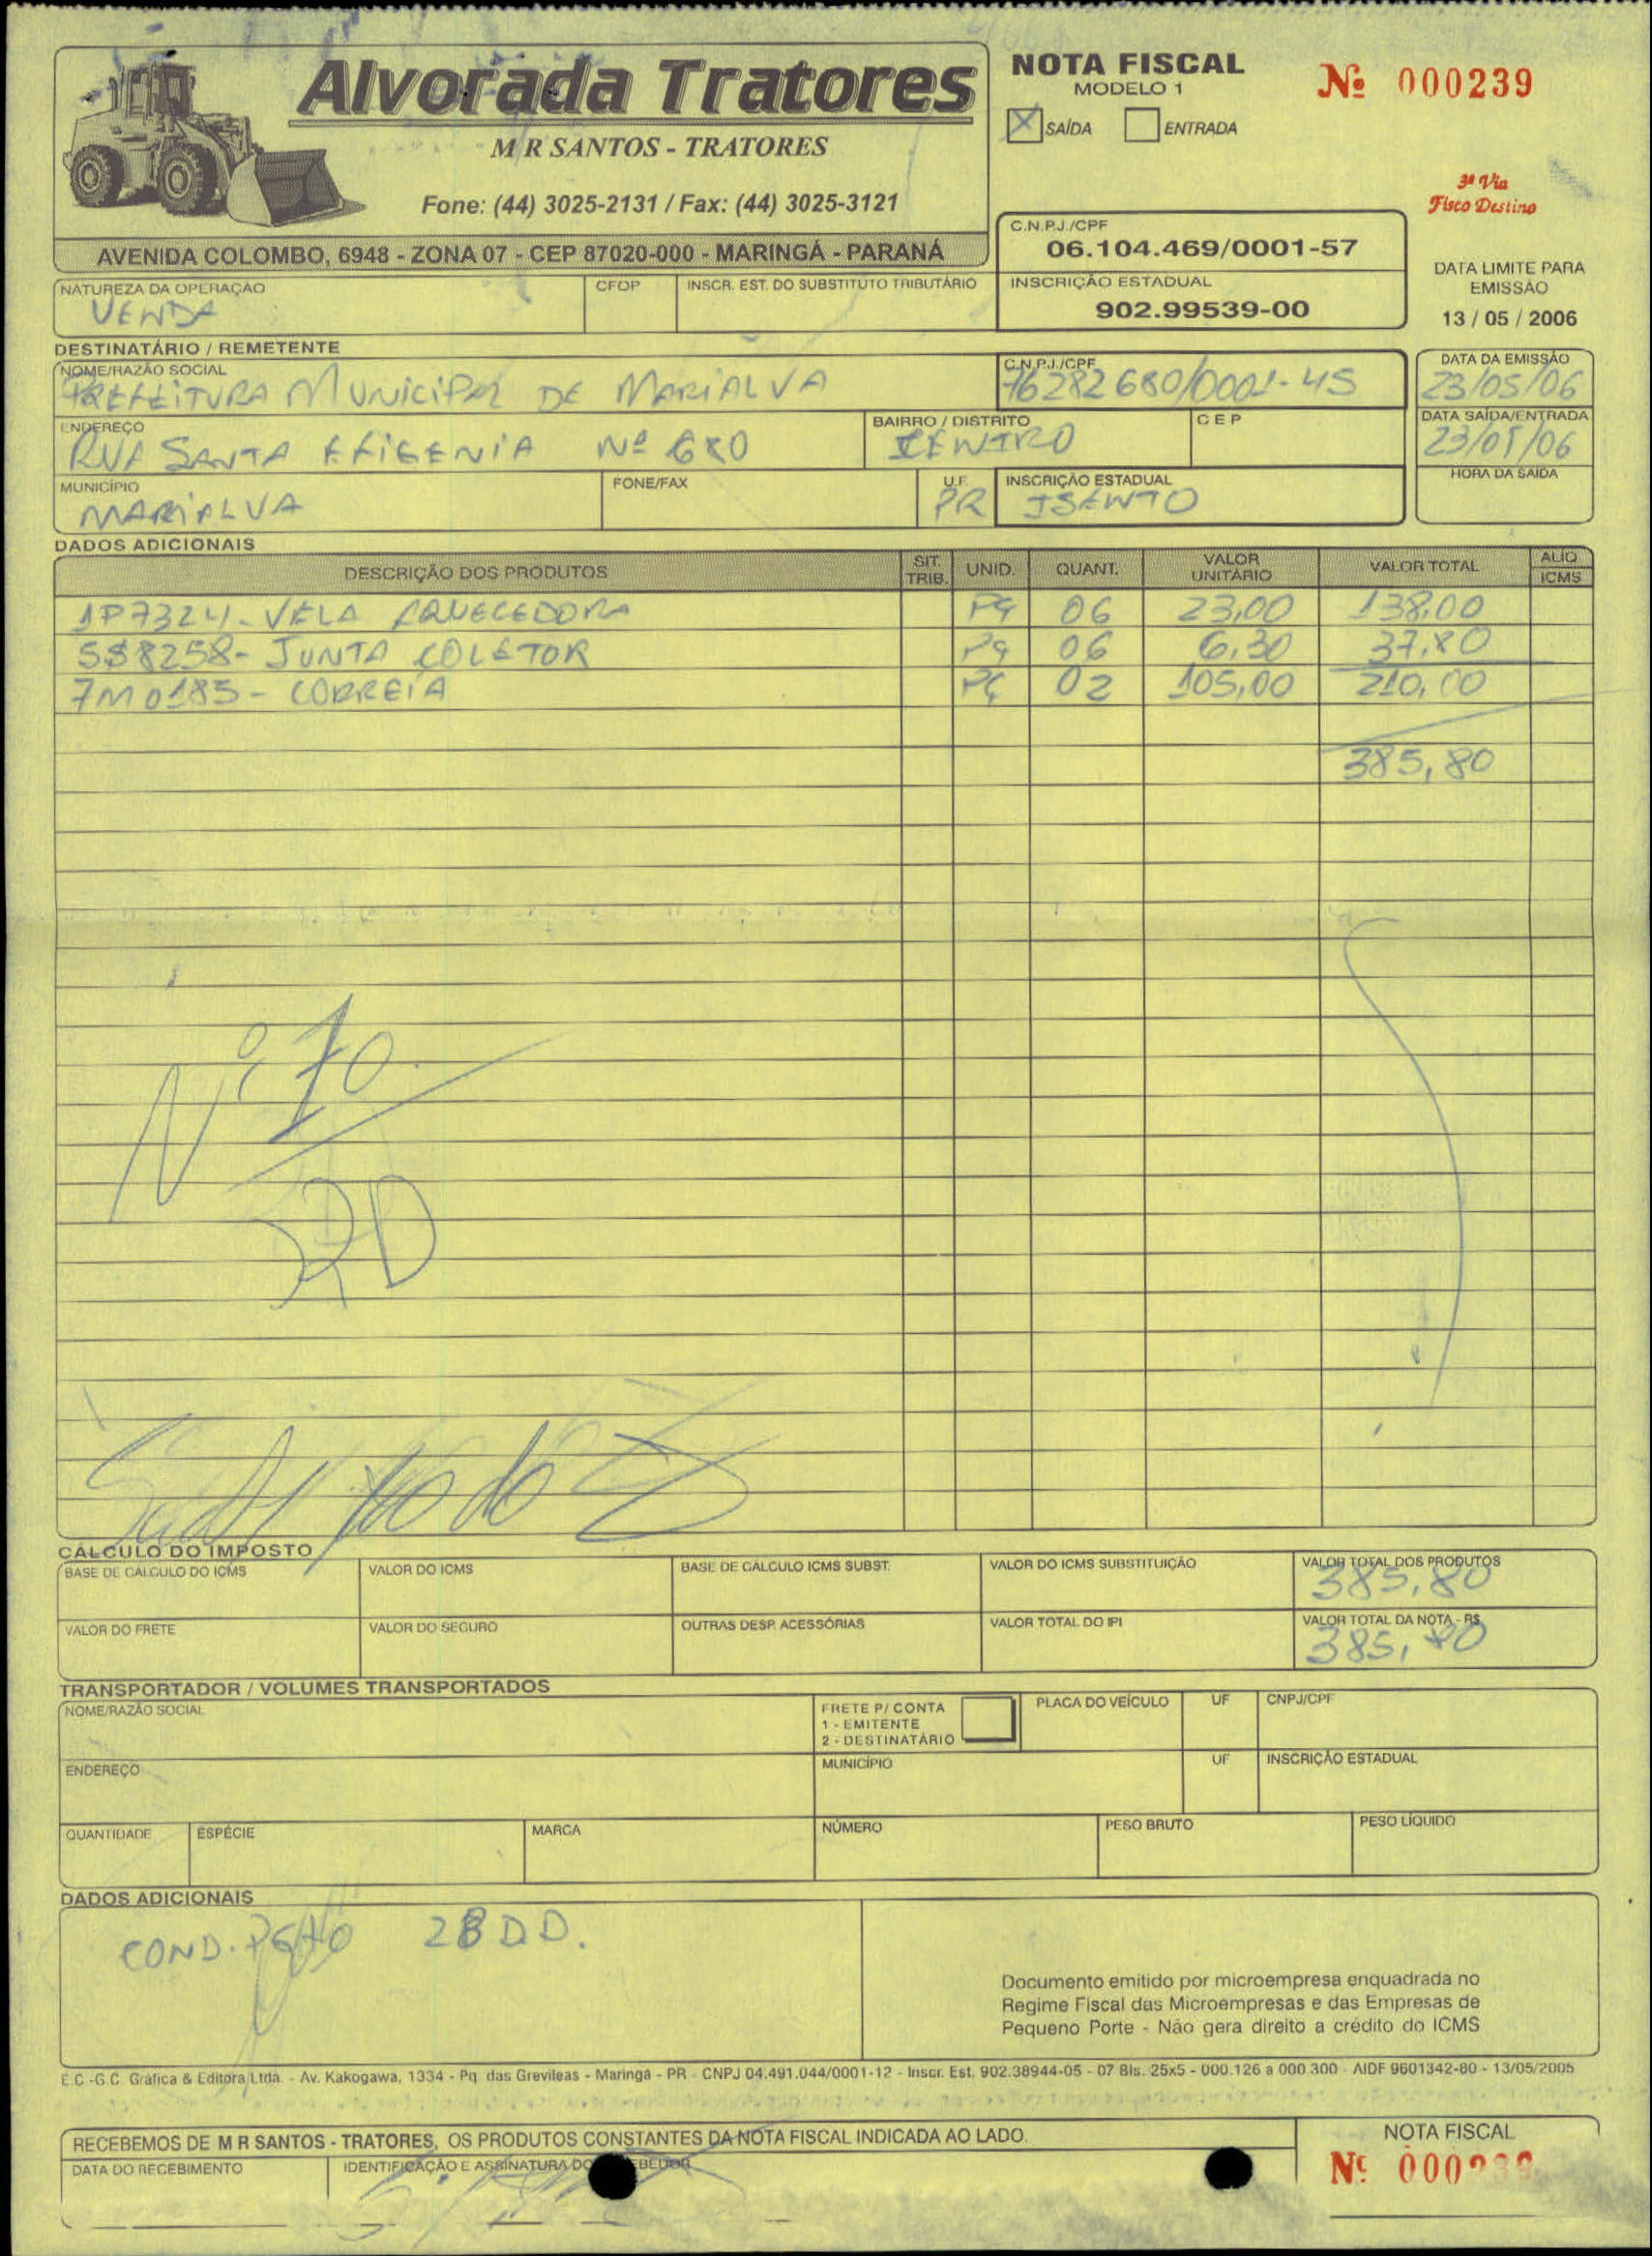 Alvorada Tratores
M R SANTOS - TRATORES
Fone: (44) 3025-2131 / Fax: (44) 3025-3121
AVENIDA COLOMBO, 6948 - ZONA 07 - CEP 87020-000 - MARINGÁ - PARANÁ
NOTA FISCAL
MODELO 1
X SAÍDA ENTRADA
Nº 000239
3ª Via
Fisco Destino
C.N.P.J./CPF
06.104.469/0001-57
INSCRIÇÃO ESTADUAL
902.99539-00
DATA LIMITE PARA
EMISSÃO
13 / 05 / 2006
NATUREZA DA OPERAÇÃO CFOP INSCR. EST. DO SUBSTITUTO TRIBUTÁRIO
VENDA
DESTINATÁRIO / REMETENTE
NOME/RAZÃO SOCIAL C.N.P.J./CPF DATA DA EMISSÃO
PREFEITURA MUNICIPAL DE MARIALVA 76282680/0001-45 23/05/06
ENDEREÇO BAIRRO / DISTRITO CEP DATA SAÍDA/ENTRADA
RUA SANTA EFIGENIA Nº 680 CENTRO 23/05/06
MUNICÍPIO FONE/FAX U.F. INSCRIÇÃO ESTADUAL HORA DA SAÍDA
MARIALVA PR ISENTO
DADOS ADICIONAIS
DESCRIÇÃO DOS PRODUTOS SIT. TRIB. UNID. QUANT. VALOR UNITÁRIO VALOR TOTAL ALÍQ. ICMS
1P7324 - VELA AQUECEDORA PÇ 06 23,00 138,00
5S8258 - JUNTA COLETOR PÇ 06 6,30 37,80
7M0185 - CORREIA PÇ 02 105,00 210,00
385,80
Nº 70
CÁLCULO DO IMPOSTO
BASE DE CÁLCULO DO ICMS VALOR DO ICMS BASE DE CÁLCULO ICMS SUBST. VALOR DO ICMS SUBSTITUIÇÃO VALOR TOTAL DOS PRODUTOS
385,80
VALOR DO FRETE VALOR DO SEGURO OUTRAS DESP. ACESSÓRIAS VALOR TOTAL DO IPI VALOR TOTAL DA NOTA - R$
385,80
TRANSPORTADOR / VOLUMES TRANSPORTADOS
NOME/RAZÃO SOCIAL FRETE P/ CONTA PLACA DO VEÍCULO UF CNPJ/CPF
1 - EMITENTE
2 - DESTINATÁRIO
ENDEREÇO MUNICÍPIO UF INSCRIÇÃO ESTADUAL
QUANTIDADE ESPÉCIE MARCA NÚMERO PESO BRUTO PESO LÍQUIDO
DADOS ADICIONAIS
COND. PGTO 28 D.D.
Documento emitido por microempresa enquadrada no
Regime Fiscal das Microempresas e das Empresas de
Pequeno Porte - Não gera direito a crédito do ICMS
E.C.-G.C. Gráfica & Editora Ltda. - Av. Kakogawa, 1334 - Pq. das Grevíleas - Maringá - PR - CNPJ 04.491.044/0001-12 - Inscr. Est. 902.38944-05 - 07 Bls. 25x5 - 000.126 a 000.300 - AIDF 9601342-80 - 13/05/2005
RECEBEMOS DE M R SANTOS - TRATORES, OS PRODUTOS CONSTANTES DA NOTA FISCAL INDICADA AO LADO.
DATA DO RECEBIMENTO IDENTIFICAÇÃO E ASSINATURA DO
NOTA FISCAL
Nº 000239